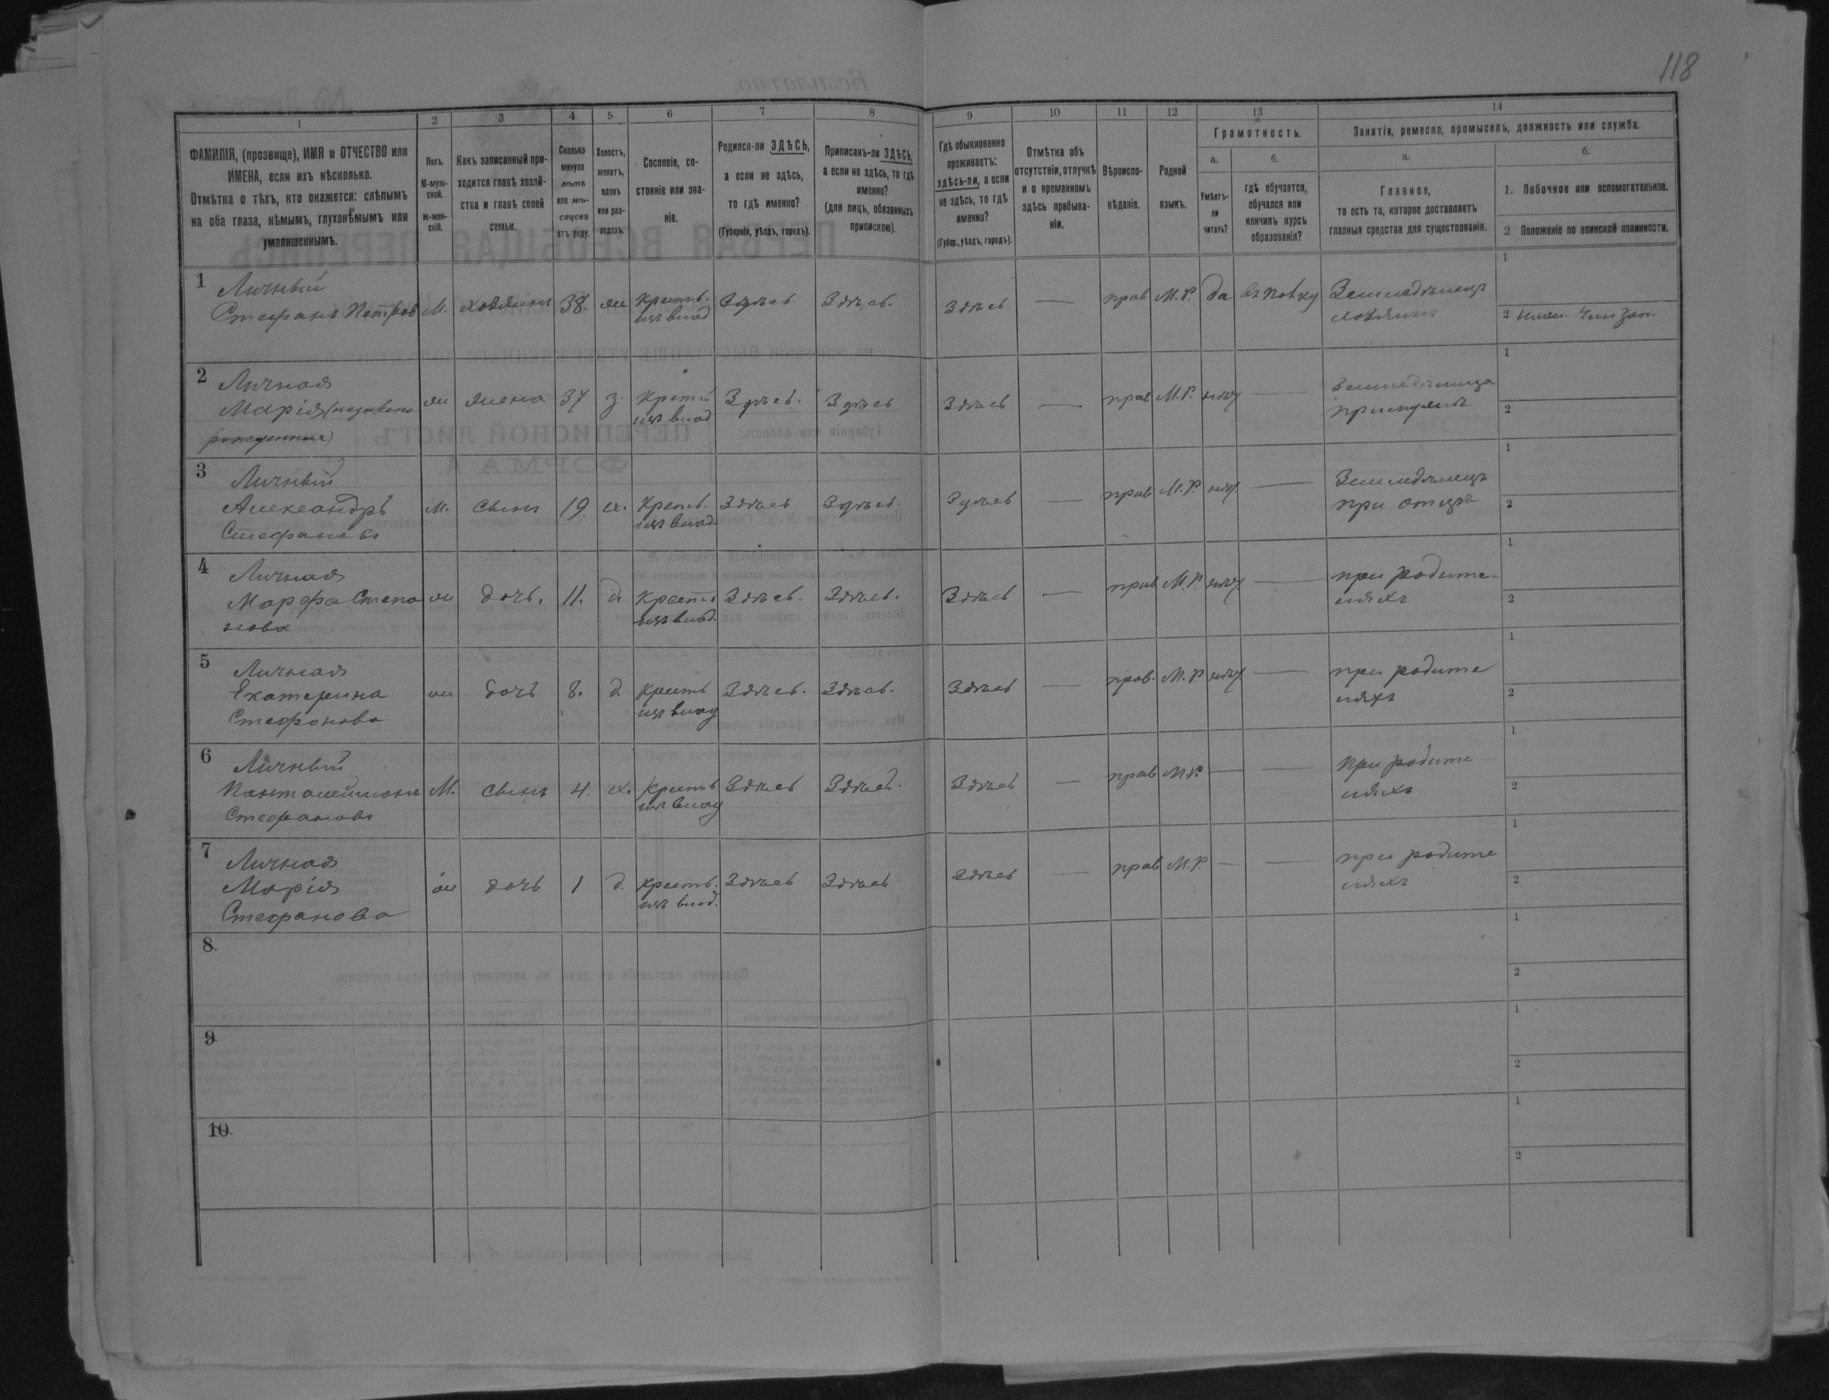 118
1 2 3 4 5 6 7 8 9 10 11 12 13 14
ФАМИЛІЯ, (прозвище), ИМЯ и ОТЧЕСТВО или
ИМЕНА, если ихъ нѣсколько.
Отмѣтка о тѣхъ, кто окажется: слѣпымъ
на оба глаза, нѣмымъ, глухонѣмымъ или
умалишеннымъ.
Полъ.
М-муж-
ской.
Ж-жен-
скій.
Какъ записанный при-
ходится главѣ хозяй-
ства и главѣ своей
семьи.
Сколько
минуло
лѣтъ
или мѣ-
сяцевъ
отъ роду.
Холостъ,
женатъ,
вдовъ
или раз-
веденъ.
Сословіе, со-
стояніе или зва-
ніе.
Родился-ли ЗДѢСЬ,
а если не здѣсь,
то гдѣ именно?
(Губернія, уѣздъ, городъ).
Приписанъ-ли ЗДѢСЬ,
а если не здѣсь, то гдѣ
именно?
(для лицъ, обязанныхъ
припискою).
Гдѣ обыкновенно
проживаетъ:
здѣсь-ли, а если
не здѣсь, то гдѣ
именно?
(Губер., уѣздъ, городъ).
Отмѣтка объ
отсутствіи, отлучкѣ
и о временномъ
здѣсь пребыва-
ніи.
Вѣроиспо-
вѣданіе.
Родной
языкъ.
Грамотность.
а.
Умѣетъ-
ли
читать?
б.
гдѣ обучается,
обучался или
кончилъ курсъ
образованія?
Занятія, ремесло, промыселъ, должность или служба.
а.
Главное,
то есть то, которое доставляетъ
главныя средства для существованія.
б.
1. Побочное или вспомогательное.
2 Положеніе по воинской повинности.
1 Личный
Стефанъ Петровъ М. хозяинъ 38 ж Крестъ.
изъ влад Здѣсь Здѣсь. Здѣсь — прав М.Р. да Земледѣлецъ
хозяинъ
1
2
2 Личная
Марія ж жена 37 з. Крест
изъ влад Здѣсь. Здѣсь Здѣсь — прав М.Р. нѣт — Земледѣлица
при мужѣ
1
2
3 Личный
Александръ
Стефановъ М. сынъ 19 х. Кресть.
изъ влад. Здѣсь Здѣсь. Здѣсь — прав М.Р. нѣт — Земледѣлецъ
при отцѣ
1
2
4 Личная
Марфа Степа
нова ж дочь. 11. д Крестъ
изъ влад. Здѣсь. Здѣсь. Здѣсь — прав М.Р. нѣт — при родите-
ляхъ
1
2
5 Личная
Екатерина
Стефанова ж дочь 8. д. Кресть
изъ влад Здѣсь. Здѣсь. Здѣсь — прав. М.Р. нѣт — при родите
ляхъ
1
2
6 Личный
Пантелеймонъ
Стефановъ М. сынъ 4. х. Кресть
изъ влад Здѣсь Здѣсь. Здѣсь — прав М.Р. — — При родите-
ляхъ
1
2
7 Личная
Марія
Стефанова ж дочь 1 д. Кресть.
изъ влад. Здѣсь Здѣсь Здѣсь — прав М.Р. — — при родите
ляхъ
1
2
8
1
2
9
1
2
10
1
2